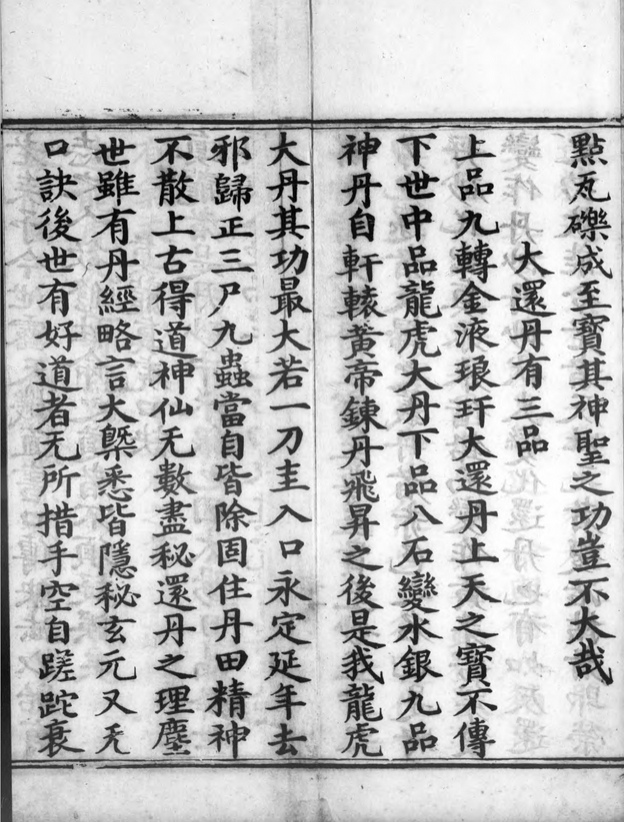 點瓦礫成至寶其神聖之功豈不大哉
大還丹有三品
上品九轉金液琅玕大還丹上天之寶不傳
下世中品龍虎大丹下品八石變水銀九品
神丹自軒轅黃帝鍊丹飛昇之後是我龍虎
大丹其功最大若一刀圭入口永定延年去
邪歸正三尸九蟲當自皆除固住丹田精神
不散上古得道神仙无數盡秘還丹之理塵
世雖有丹經略言大槩悉皆隱秘玄元又无
口訣後世有好道者无所措手空自蹉跎衰